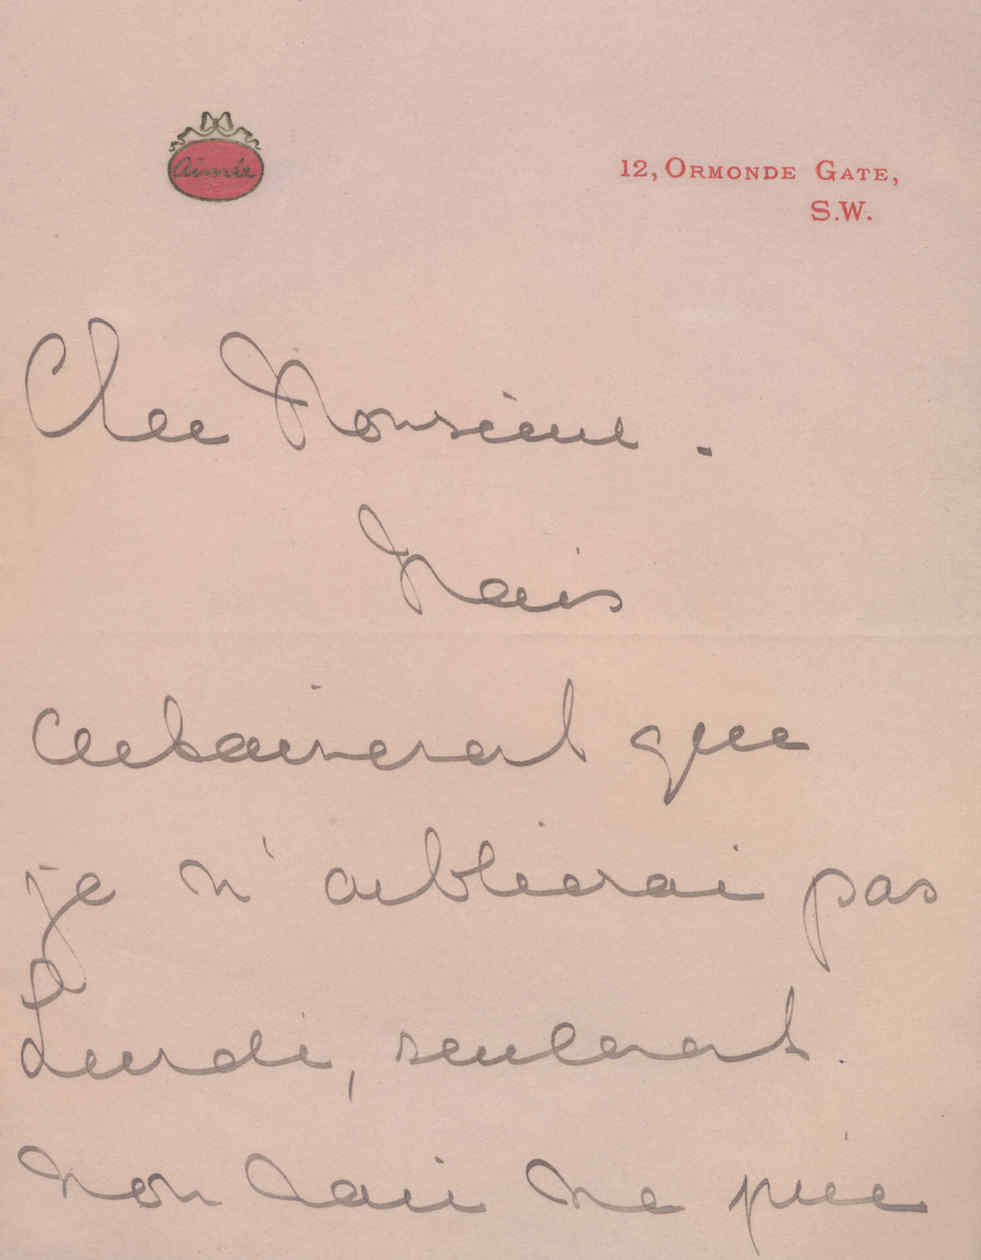 Aimée
12, ORMONDE GATE,
S.W.
Cher Monsieur.
Mais
certainement que
je n'oublierai pas
Lundi, seulement
mon mari me prie